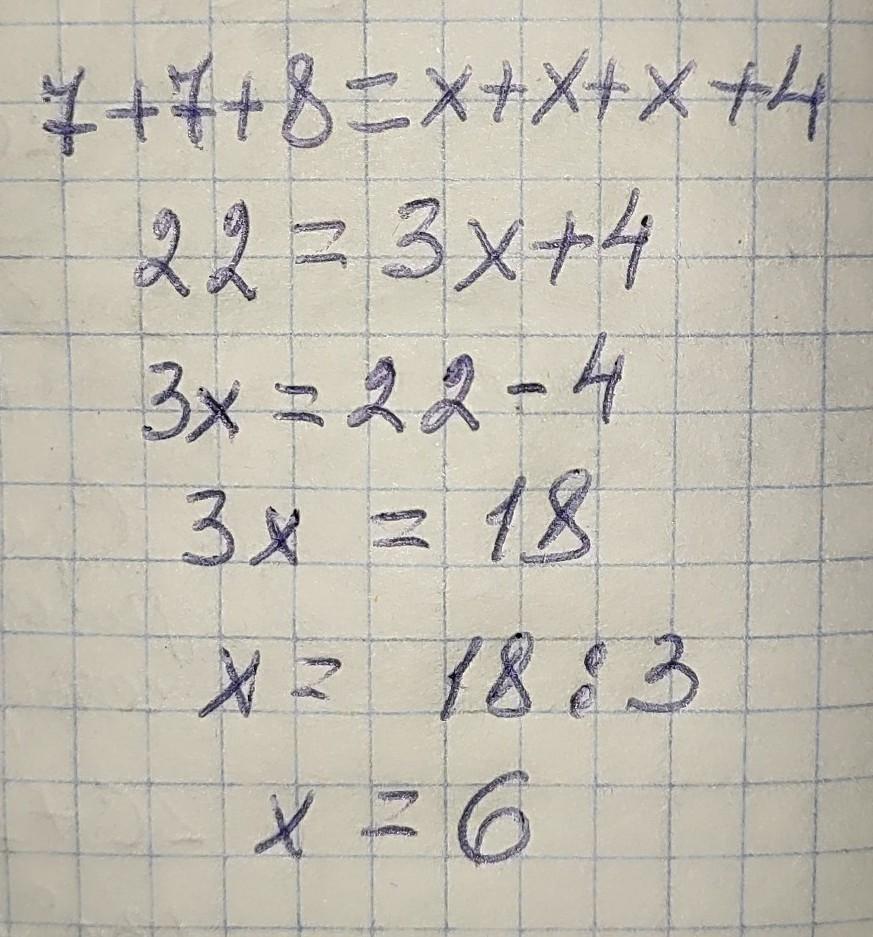 7+7+8=x+x+x+4
22=3x+4
3x=22-4
3x=18
x=18:3
x=6